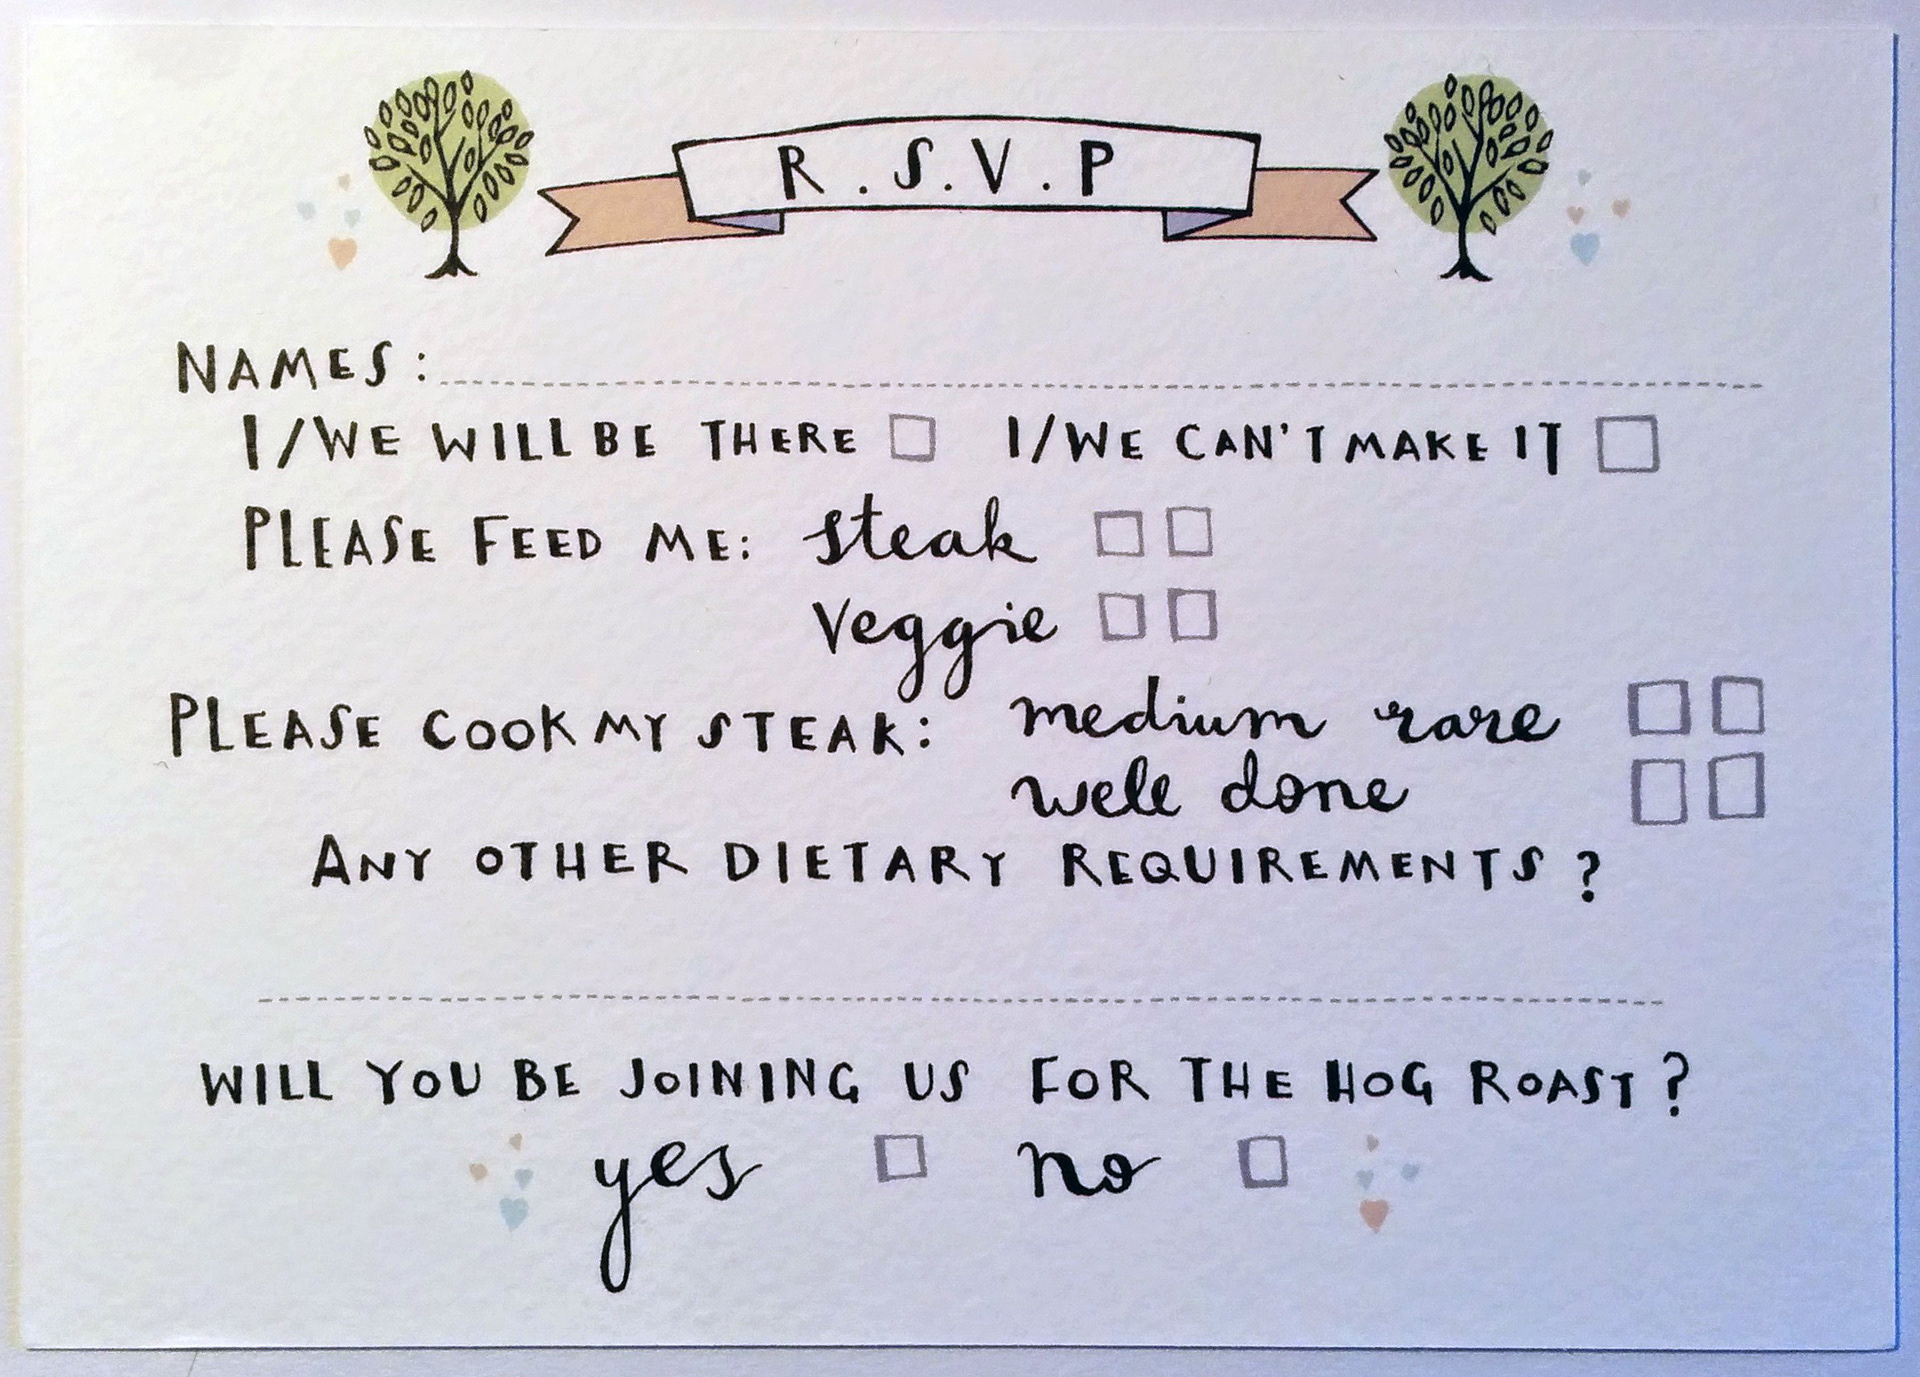 R.S.V.P
NAMES:
I/WE WILL BE THERE I/WE CAN'T MAKE IT
PLEASE FEED ME: steak
veggie
PLEASE COOK MY STEAK: medium rare
well done
ANY OTHER DIETARY REQUIREMENTS?
WILL YOU BE JOINING US FOR THE HOG ROAST?
yes no